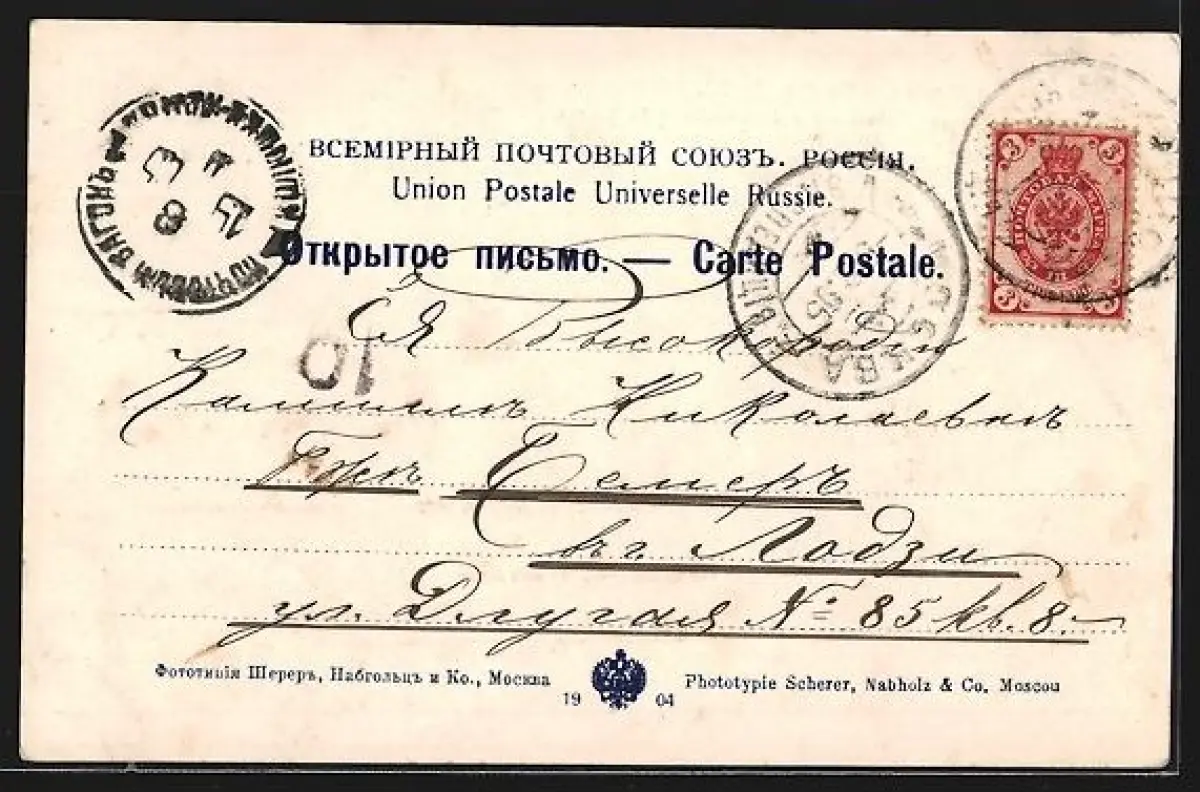 ВСЕМІРНЫЙ ПОЧТОВЫЙ СОЮЗЪ. РОССІЯ.
Union Postale Universelle Russie.
Открытое письмо. — Carte Postale.
3 3
3 3
ПОЧТОВЫЙ ВАГОНЪ
МОСКВА
10
Ея Высокородiю
Николаевнѣ
Гжѣ Бемеръ
въ г. Лодзи
ул. Длугая № 85 кв. 8.
Фототипія Шереръ, Набгольцъ и Ко., Москва
1904
Phototypie Scherer, Nabholz & Co. Moscou